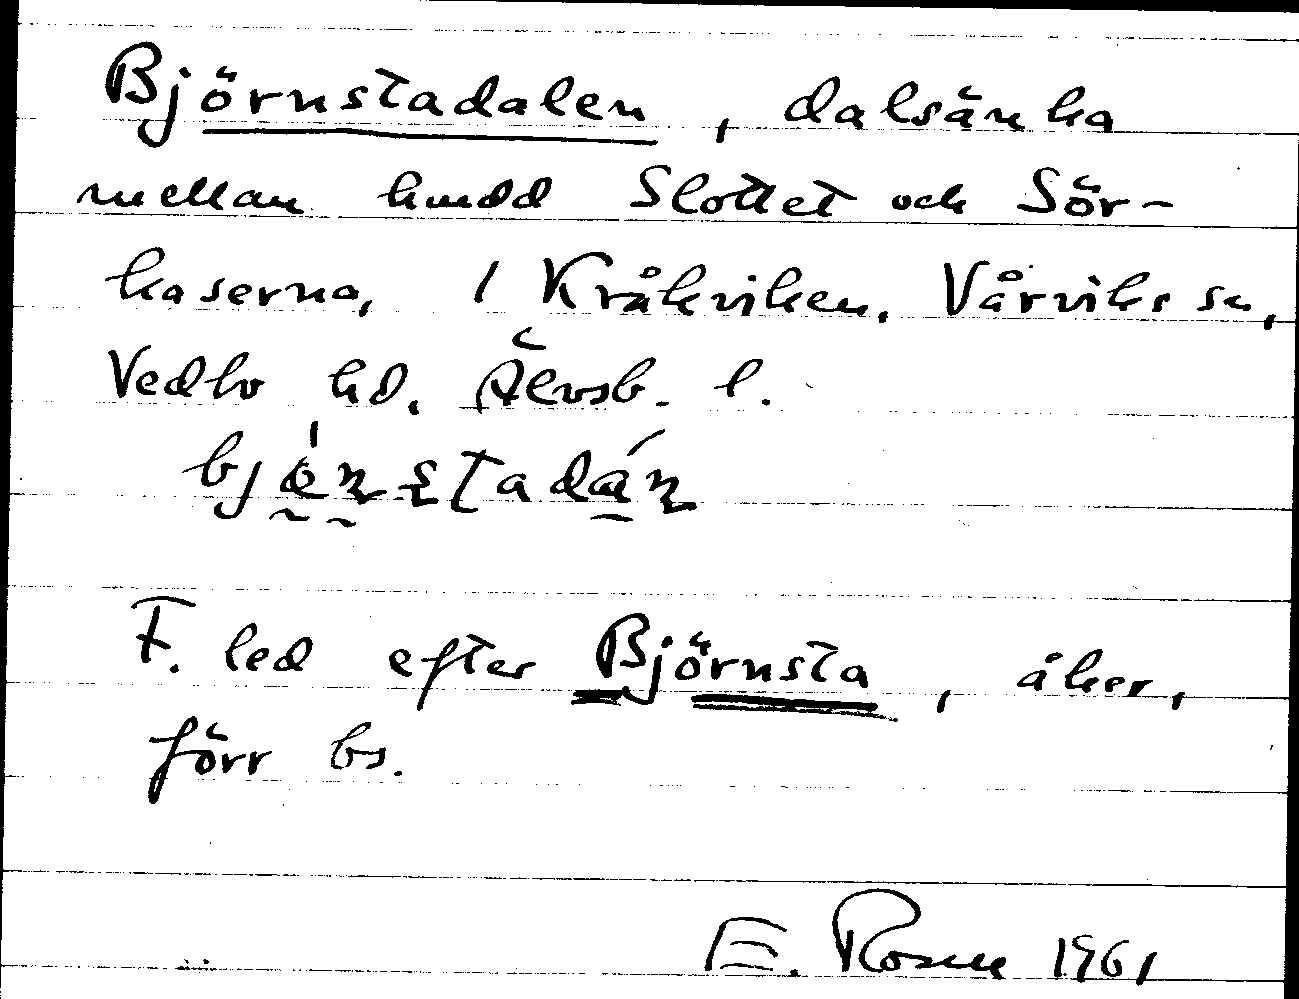 Björnstadalen, dalsänka
mellan hmdd Slottet och Sör-
kaserna, i Kråkviken, Vårviks sn,
Vedbo hd, Älvsb. l.
F. led efter Björnsta, åker,
förr bs.
E. Rosell 1961